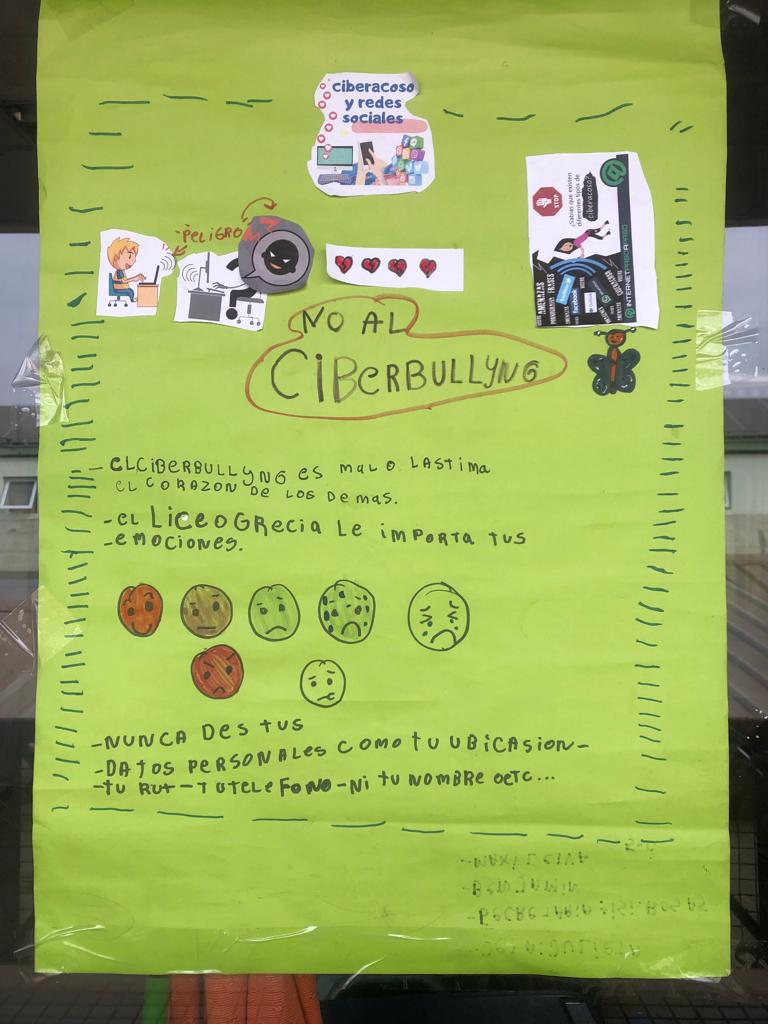 ciberacoso
y redes
sociales
PELIGRO
STOP
¿Sabías que existen
diferentes tipos de
ciberacoso?
@INTERNETPASOAPASO
AMENAZAS
facebook
NO AL
CIBERBULLYNG
- ELCIBERBULLYNG ES MALO LASTIMA
EL CORAZON DE LOS DEMAS.
-EL LICEOGRECIA LE IMPORTA TUS
-EMOCIONES.
-NUNCA DES TUS
-DATOS PERSONALES COMO TU UBICASION-
-TU RUT-TUTELEFONO-NI TU NOMBRE OETC...
-MAXI LEIVA
-BENJAMIN